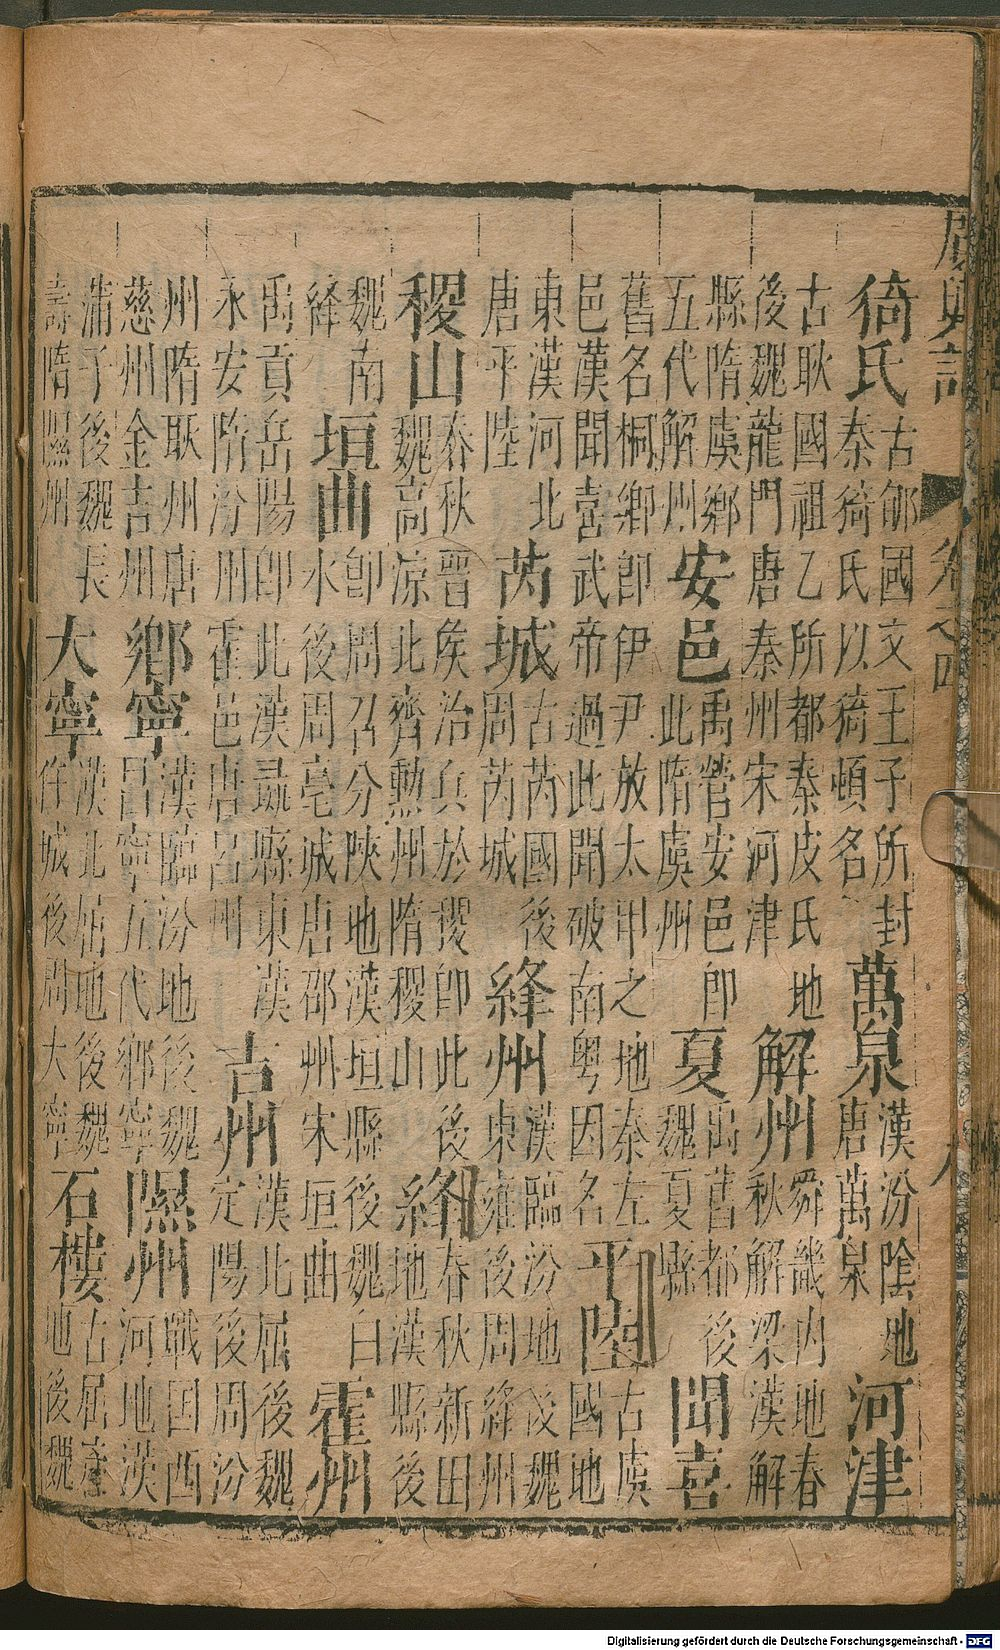 廣輿記 卷之四 八
猗氏 古郇國文王子所封秦猗氏以猗頓名 萬泉 漢汾陰地唐萬泉 河津
古耿國祖乙所都秦皮氏地後魏龍門唐秦州宋河津 解州 舜畿內地春秋解梁漢解
縣隋虞鄉五代解州 安邑 禹營安邑即此隋虞州 夏 禹舊都後魏夏縣 聞喜
舊名桐鄉即伊尹放太甲之地秦左邑漢聞喜武帝過此聞破南粵因名 平陸 古虞國地
東漢河北唐平陸 芮城 古芮國後周芮城 絳州 漢臨汾地後魏東雍後周絳州
稷山 春秋晉侯治兵於稷即此後魏高涼北齊勲州隋稷山 絳 春秋新田地漢縣後
魏南絳 垣曲 即周召分陝地漢垣縣後魏白水後周亳城唐邵州宋垣曲 霍州
禹貢岳陽即此漢彘縣東漢永安隋汾州霍邑唐呂州 吉州 漢北屈後魏定陽後周汾
州隋耿州唐慈州金吉州 鄉寧 漢臨汾地後魏昌寧五代鄉寧 隰州 戰國西河地漢
蒲子後魏長壽隋隰州 大寧 漢北屈地後魏仵城後周大寧 石樓 古屈產地後魏
Digitalisierung gefördert durch die Deutsche Forschungsgemeinschaft - DFG